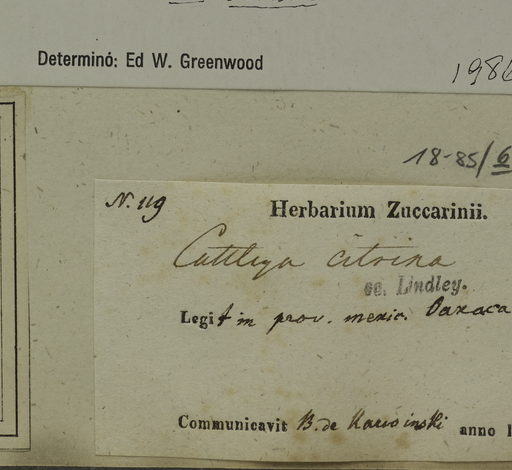 Determinó: Ed W. Greenwood
1986
18-85/6
N. 119
Herbarium Zuccarinii.
Cattleya citrina
Lindley.
Legit in prov. mexic. Oaxaca
Communicavit B. de Karwinski anno 1